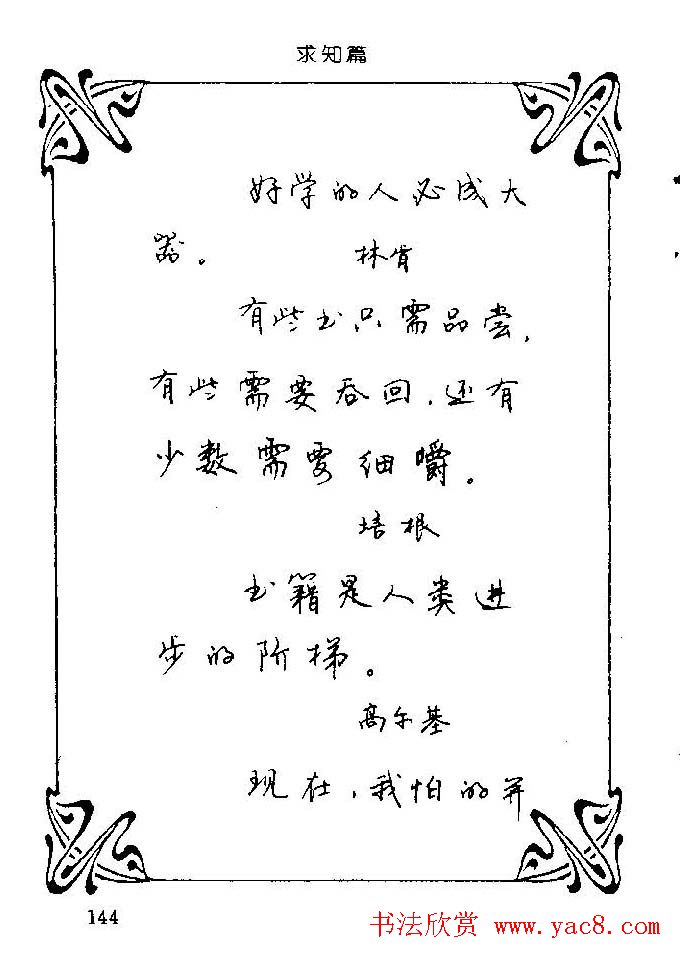 求知篇
好学的人必成大
器。 林肯
有些书只需品尝,
有些需要吞回,还有
少数需要细嚼。
培根
书籍是人类进
步的阶梯。
高尔基
现在,我怕的并
144
书法欣赏 www.yac8.com